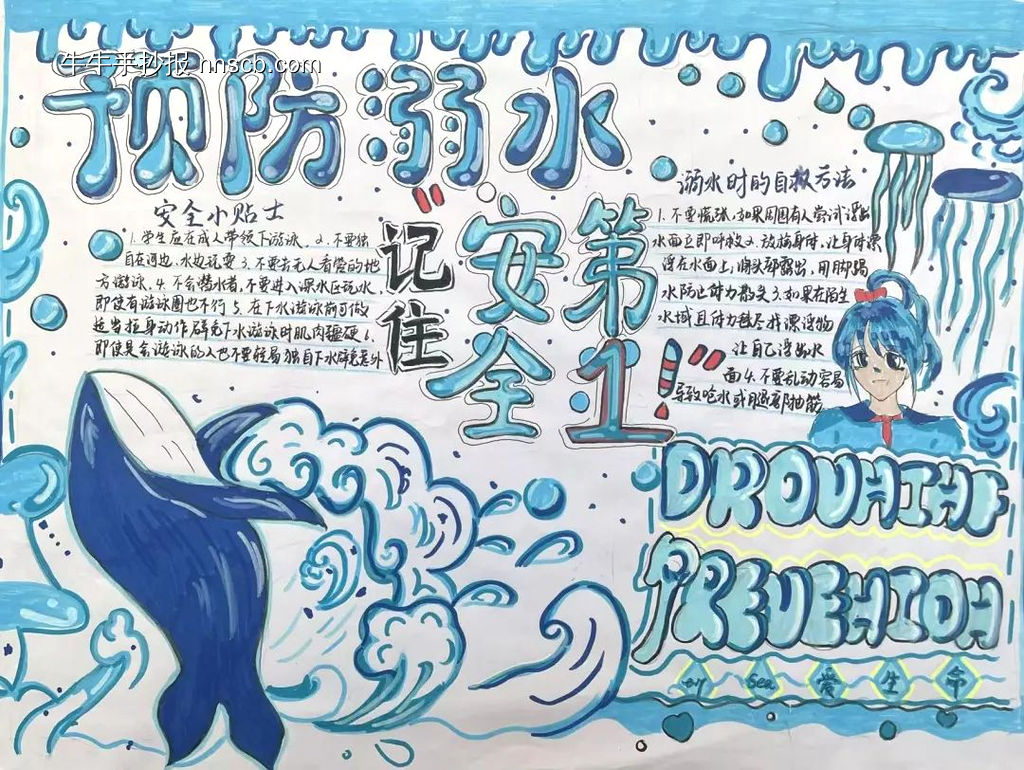 牛牛手抄报 nnscb.com
预防溺水
安全小贴士
1.学生应在成人带领下游泳。2.不要独
自在河边、水边玩耍3.不要去无人看管的地
方游泳.4.不会潜水者,不要进入深水区玩水,
即使有游泳圈也不行5.在下水游泳前可做
适当拉身动作避免下水游泳时肌肉僵硬6.
即使是会游泳的人也不要轻易独自下水避免意外
"记住
安全
第1!"
溺水时的自救方法
1.不要慌张.如果周围有人尝试浮出
水面立即呼救2.放松身体,让身体漂
浮在水面上,将头部露出,用脚踢
水防止体力散失3.如果在陌生
水域且体力耗尽找漂浮物
让自己浮出水
面4.不要乱动容易
导致呛水或腿部抽筋
DROUHIHF
PREUEHIOH
Sea 爱 生 命